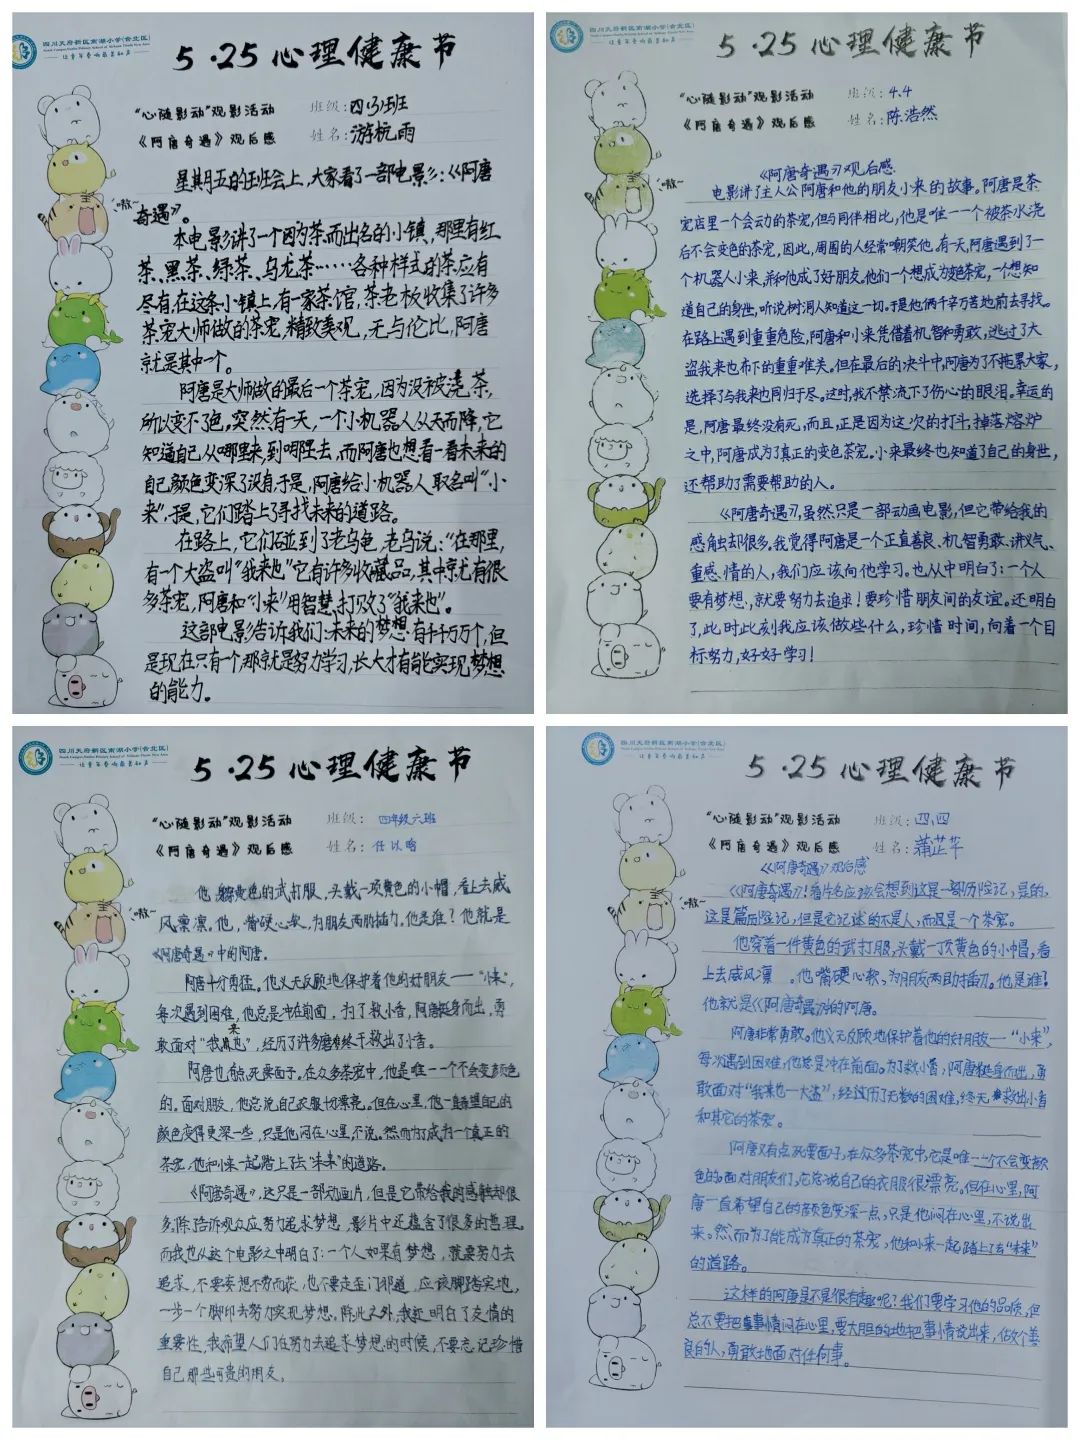 四川天府新区南湖小学(合北区)
5·25心理健康节
"心随影动"观影活动
班级:四(3)班
《阿唐奇遇》观后感
姓名:游杭雨
嗷~
星期五的班会上,大家看了一部电影:《阿唐
奇遇》。
本电影讲了一个因为茶而出名的小镇,那里有红
茶、黑茶、绿茶、乌龙茶……各种样式的茶应有
尽有,在这条小镇上,有一家茶馆,茶老板收集了许多
茶宠大师做的茶宠,精致美观,无与伦比,阿唐
就是其中一个。
阿唐是大师做的最后一个茶宠,因为没被浇茶,
所以变不了色。突然有一天,一个小机器人从天而降,它
知道自己从哪里来,到哪里去,而阿唐也想看一看未来的
自己颜色变深了没有,于是,阿唐给小机器人取名叫"小
来",于是,它们踏上了寻找未来的道路。
在路上,它们碰到了老乌龟,老乌说:"在那里,
有一个大盗叫"我来也"它有许多收藏品,其中就有很
多茶宠,阿唐和"小来"用智慧打败了"我来也"。
这部电影告诉我们:未来的梦想有千千万万个,但
是现在只有一个,那就是努力学习,长大才有能实现梦想
的能力。
四川天府新区南湖小学(合北区)
5·25心理健康节
"心随影动"观影活动
班级:4.4
《阿唐奇遇》观后感
姓名:陈浩然
嗷~
《阿唐奇遇》观后感
电影讲了主人公阿唐和他的朋友小来的故事。阿唐是茶
宠店里一个会动的茶宠,但与同伴相比,他是唯一一个被茶水浇
后不会变色的茶宠,因此,周围的人经常嘲笑他。有一天,阿唐遇到了一
个机器人小来,并和他成了好朋友。他们一个想成为变色茶宠,一个想知
道自己的身世,听说树洞人知道这一切。于是他俩千辛万苦地前去寻找。
在路上遇到重重危险,阿唐和小来凭借着机智和勇敢,逃过了大
盗我来也布下的重重难关。但在最后的决斗中,阿唐为了不拖累大家,
选择了与我来也同归于尽。这时,我不禁流下了伤心的眼泪。幸运的
是,阿唐最终没有死,而且,正是因为这次的打斗,掉落熔炉
之中,阿唐成为了真正的变色茶宠。小来最终也知道了自己的身世,
还帮助了需要帮助的人。
《阿唐奇遇》,虽然只是一部动画电影,但它带给我的
感触却很多。我觉得阿唐是一个正直善良、机智勇敢、讲义气、
重感情的人,我们应该向他学习。也从中明白了:一个人
要有梦想,就要努力去追求!要珍惜朋友间的友谊。还明白
了,此时此刻我应该做些什么,珍惜时间,向着一个目
标努力,好好学习!
四川天府新区南湖小学(合北区)
5·25心理健康节
"心随影动"观影活动
班级:四年级六班
《阿唐奇遇》观后感
姓名:任以晗
嗷~
他,穿黄色的武打服,头戴一顶黄色的小帽,看上去威
风凛凛。他,嘴硬心软,为朋友两肋插刀。他是谁?他就是
《阿唐奇遇》中的阿唐。
阿唐十分勇猛。他义无反顾地保护着他的好朋友——"小来",
每次遇到困难,他总是冲在前面,为了救小香,阿唐挺身而出,勇
敢面对"我来也",经历了许多磨难终于救出了小香。
阿唐也有点死要面子。在众多茶宠中,他是唯一一个不会变颜色
的。面对朋友,他总说自己衣服很漂亮。但在心里,他一直希望自己的
颜色变得更深一些,只是他闷在心里不说。然而为了成为一个真正的
茶宠,他和小来一起踏上了去"未来"的道路。
《阿唐奇遇》,这只是一部动画片,但是它带给我的感触却很
多,除了告诉观众应努力追求梦想,影片中还蕴含了很多的哲理。
而我也从这个电影之中明白了:一个人如果有梦想,就要努力去
追求,不要妄想不劳而获,也不要走歪门邪道,应该脚踏实地,
一步一个脚印去努力实现梦想。除此之外,我还明白了友情的
重要性,我希望人们在努力去追求梦想的时候,不要忘记珍惜
自己那些可贵的朋友。
四川天府新区南湖小学(合北区)
5·25心理健康节
"心随影动"观影活动
班级:四、四
《阿唐奇遇》观后感
姓名:蒲芷芊
嗷~
《阿唐奇遇》观后感
《阿唐奇遇》!看片名应该会想到这是一部历险记,是的,
这是篇历险记,但是它记述的不是人,而这是一个茶宠。
他穿着一件黄色的武打服,头戴一顶黄色的小帽,看
上去威风凛 。他嘴硬心软,为朋友两肋插刀。他是谁?
他就是《阿唐奇遇》的阿唐。
阿唐非常勇敢。他义无反顾地保护着他的好朋友——"小来",
每次遇到困难,他总是冲在前面。为了救小香,阿唐挺身而出,勇
敢面对"我来也一大盗",经过历了无数的困难,终于救出小香
和其它的茶宠。
阿唐又有点死要面子,在众多茶宠中,它是唯一一个不会变颜
色的。面对朋友们,它总说自己的衣服很漂亮。但在心里,阿
唐一直希望自己的颜色变深一点,只是他闷在心里,不说出
来。然而为了能成为真正的茶宠,他和小来一起踏上了去"未来"
的道路。
这样的阿唐是不是很有趣呢?我们要学习他的品质,但
总不要把事情闷在心里,要大胆的地把事情说出来,做个善
良的人,勇敢地面对任何事。